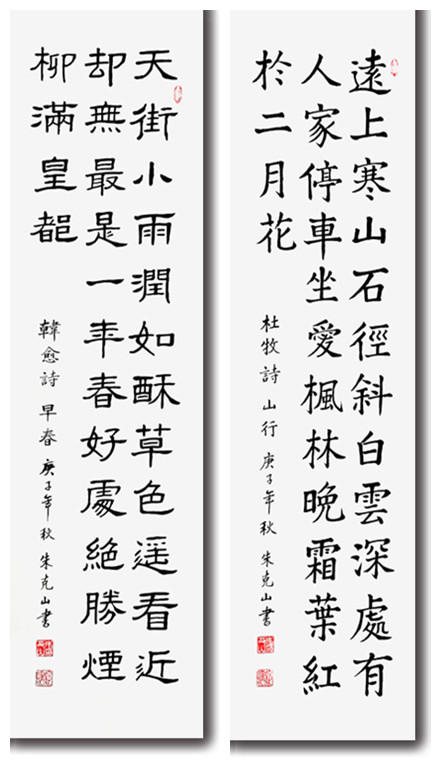 遠上寒山石徑斜白雲深處有
人家停車坐愛楓林晚霜葉紅
於二月花
杜牧詩 山行 庚子年秋 朱克山書
天街小雨潤如酥草色遥看近
却無最是一年春好處絕勝煙
柳滿皇都
韓愈詩 早春 庚子年秋 朱克山書